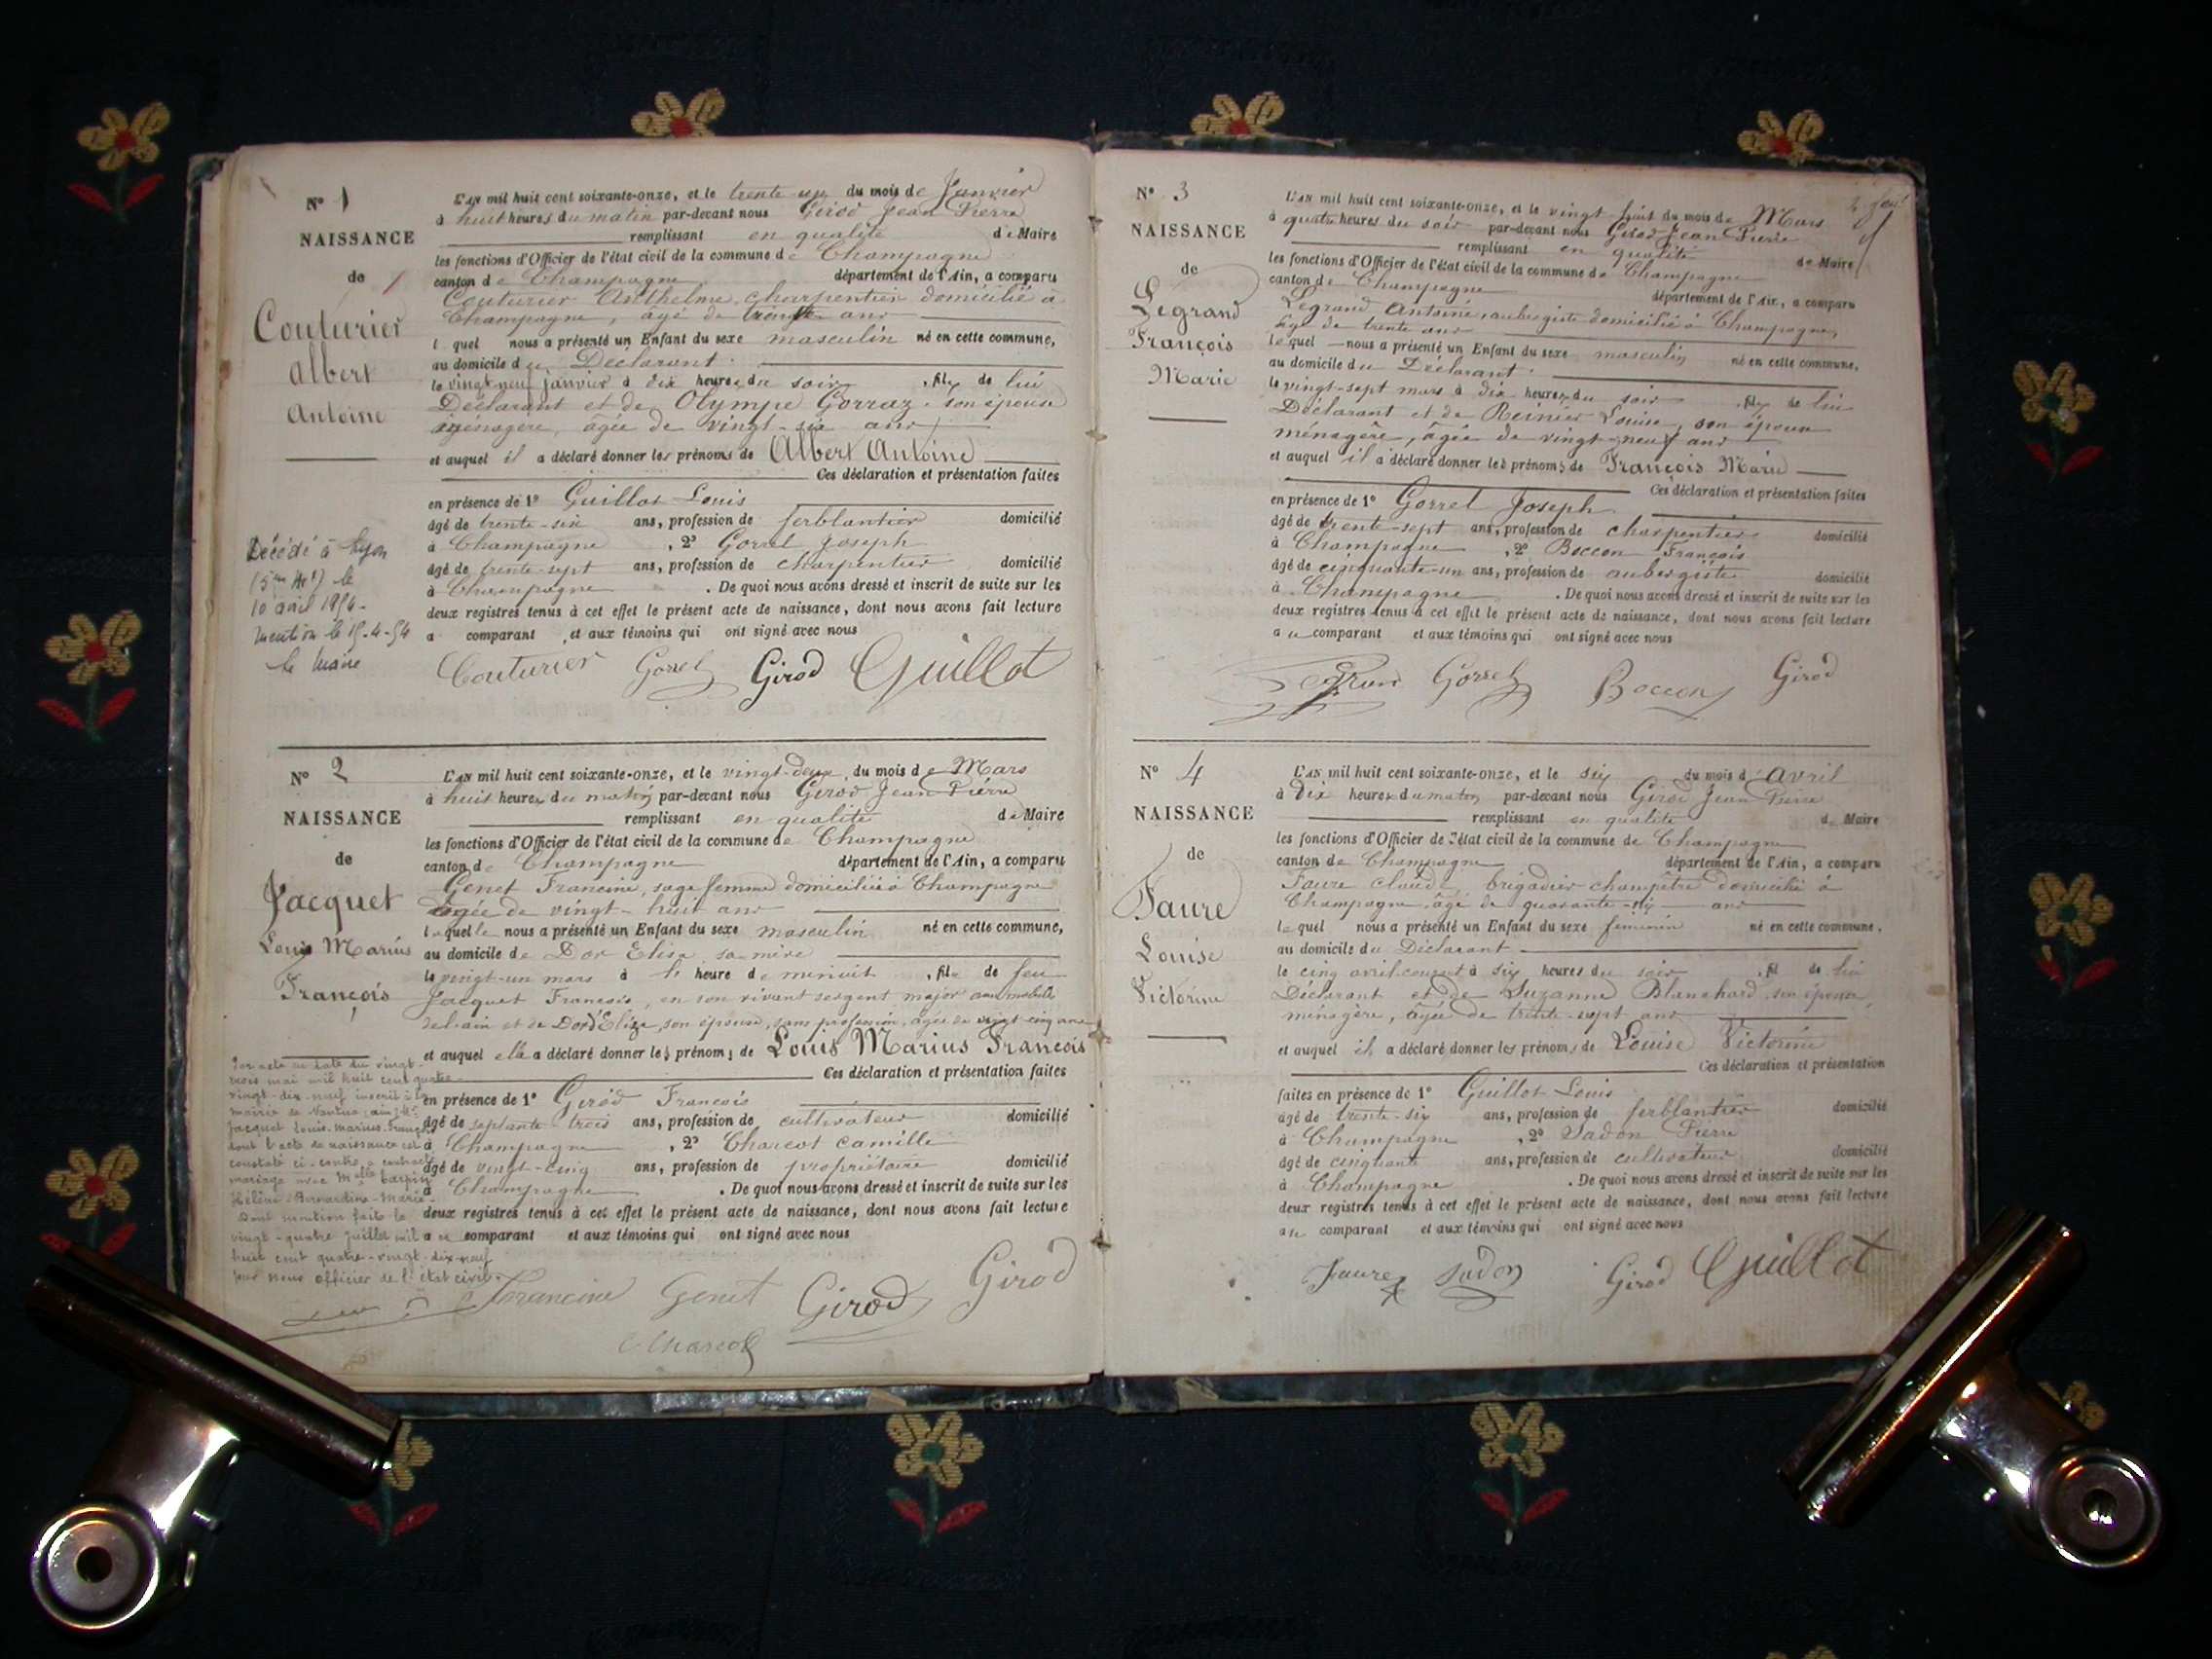 N° 1
NAISSANCE
de
Couturier
Albert
Antoine
L'AN mil huit cent soixante-onze, et le trente-un du mois de Janvier
à huit heures du matin par-devant nous Girod Jean Pierre
remplissant en qualité de Maire
les fonctions d'Officier de l'état civil de la commune de Champagne
canton de Champagne département de l'Ain, a comparu
Couturier Anthelme, charpentier domicilié à
Champagne, agé de ans
lequel nous a présenté un Enfant du sexe masculin né en cette commune,
au domicile du Déclarant.
le vingt-neuf janvier à dix heures du soir, fils de lui
Déclarant et de Olympe Gorraz, son épouse
ménagère, âgée de vingt-six ans
et auquel il a déclaré donner les prénoms de Albert Antoine
Ces déclaration et présentation faites
en présence de 1° Guillot Louis
âgé de trente-six ans, profession de ferblantier domicilié
à Champagne, 2° Gorrel Joseph
âgé de trente-sept ans, profession de charpentier domicilié
à Champagne. De quoi nous avons dressé et inscrit de suite sur les
deux registres tenus à cet effet le présent acte de naissance, dont nous avons fait lecture
a comparant, et aux témoins qui ont signé avec nous
Couturier Gorrel Girod Guillot
Décédé à Lyon
(5ème Arrt) le
10 avril 1954.
Mention le 15-4-54
le Maire
N° 2
NAISSANCE
de
Jacquet
Louis Marius
François
L'AN mil huit cent soixante-onze, et le vingt-deux, du mois de Mars
à huit heures du matin par-devant nous Girod Jean Pierre
remplissant en qualité de Maire
les fonctions d'Officier de l'état civil de la commune de Champagne
canton de Champagne département de l'Ain, a comparu
Genet Francine, sage femme domiciliée à Champagne
âgée de vingt-huit ans
laquelle nous a présenté un Enfant du sexe masculin né en cette commune,
au domicile de Dor Elisa sa mère
le vingt-un mars à heure de minuit, fils de feu
Jacquet François, en son vivant sergent major mobile
de l'ain et de Dor Elize, son épouse, sans profession, âgée de vingt-cinq ans
et auquel elle a déclaré donner les prénoms de Louis Marius François
Ces déclaration et présentation faites
en présence de 1° Girod François
âgé de septante trois ans, profession de cultivateur domicilié
à Champagne, 2° Charcot Camille
âgé de vingt-cinq ans, profession de propriétaire domicilié
à Champagne. De quoi nous avons dressé et inscrit de suite sur les
deux registres tenus à cet effet le présent acte de naissance, dont nous avons fait lecture
a comparant et aux témoins qui ont signé avec nous
Francine Genet Girod Girod
C. Charcot
Par acte en date du vingt-
trois mai mil huit cent quatre
vingt-dix-neuf inscrit à la
mairie de Nantua (ain) Mr
Jacquet Louis-Marius-François
dont l'acte de naissance est
constaté ci-contre a contracté
mariage avec Melle
Hélène-Bernardine-Marie-
Dont mention faite le
vingt-quatre juillet mil
huit cent quatre-vingt-dix-neuf
par nous officier de l'état civil.
N° 3
NAISSANCE
de
Legrand
François
Marie
L'AN mil huit cent soixante-onze, et le vingt-huit du mois de Mars
à quatre heures du soir par-devant nous Girod Jean Pierre
remplissant en qualité de Maire
les fonctions d'Officier de l'état civil de la commune de Champagne
canton de Champagne département de l'Ain, a comparu
Legrand Antoine, aubergiste domicilié à Champagne,
âgé de trente ans
lequel nous a présenté un Enfant du sexe masculin né en cette commune,
au domicile du Déclarant.
le vingt-sept mars à dix heures du soir, fils de lui
Déclarant et de Reinier Louise, son épouse
ménagère, âgée de vingt-neuf ans
et auquel il a déclaré donner les prénoms de François Marie
Ces déclaration et présentation faites
en présence de 1° Gorrel Joseph
âgé de trente-sept ans, profession de charpentier domicilié
à Champagne, 2° Boccon François
âgé de cinquante-un ans, profession de aubergiste domicilié
à Champagne. De quoi nous avons dressé et inscrit de suite sur les
deux registres tenus à cet effet le présent acte de naissance, dont nous avons fait lecture
au comparant et aux témoins qui ont signé avec nous
Gorrel Boccon Girod
N° 4
NAISSANCE
de
Faure
Louise
Victorine
L'AN mil huit cent soixante-onze, et le six du mois d'avril
à dix heures du matin par-devant nous Girod Jean Pierre
remplissant en qualité de Maire
les fonctions d'Officier de l'état civil de la commune de Champagne
canton de Champagne département de l'Ain, a comparu
Faure Claude, brigadier champêtre domicilié à
Champagne, âgé de quarante-six ans
lequel nous a présenté un Enfant du sexe féminin né en cette commune,
au domicile du Déclarant
le cinq avril courant à six heures du soir, fil de lui
Déclarant et de Suzanne Blanchard, son épouse,
ménagère, âgée de trente-sept ans
et auquel il a déclaré donner les prénoms de Louise Victorine
Ces déclaration et présentation
faites en présence de 1° Guillot Louis
âgé de trente-six ans, profession de ferblantier domicilié
à Champagne, 2° Sadon Pierre
âgé de cinquante ans, profession de cultivateur domicilié
à Champagne. De quoi nous avons dressé et inscrit de suite sur les
deux registres tenus à cet effet le présent acte de naissance, dont nous avons fait lecture
au comparant et aux témoins qui ont signé avec nous
Faure Sadon Girod Guillot